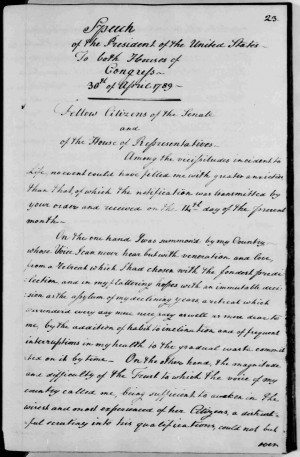 23.
Speech
of the President of the United States
To both Houses of
Congress
30th of April 1789
Fellow Citizens of the Senate
and
of the House of Representatives
Among the vicissitudes incident to
Life no event could have filled me with greater anxieties
than that, of which the notification was transmitted by
your order and received on the 14th day of the present
month. On the one hand I was summoned by my Country
whose Voice I can never hear but with veneration and love,
from a Retreat which I had chosen with the fondest predi
lection and in my flattering hopes with an immutable deci
sion as the asylum of my declining years a retreat which
was rendered every day more necessary as well as more dear to
me, by the addition of habit to inclination and of frequent
interruptions in my health to the gradual waste commit
ted on it by time. On the other hand, the magnitude
and difficulty of the Trust to which the voice of my
country called me, being sufficient to awaken in the
wisest and most experienced of her Citizens, a distrust
ful scrutiny into his qualifications, could not but